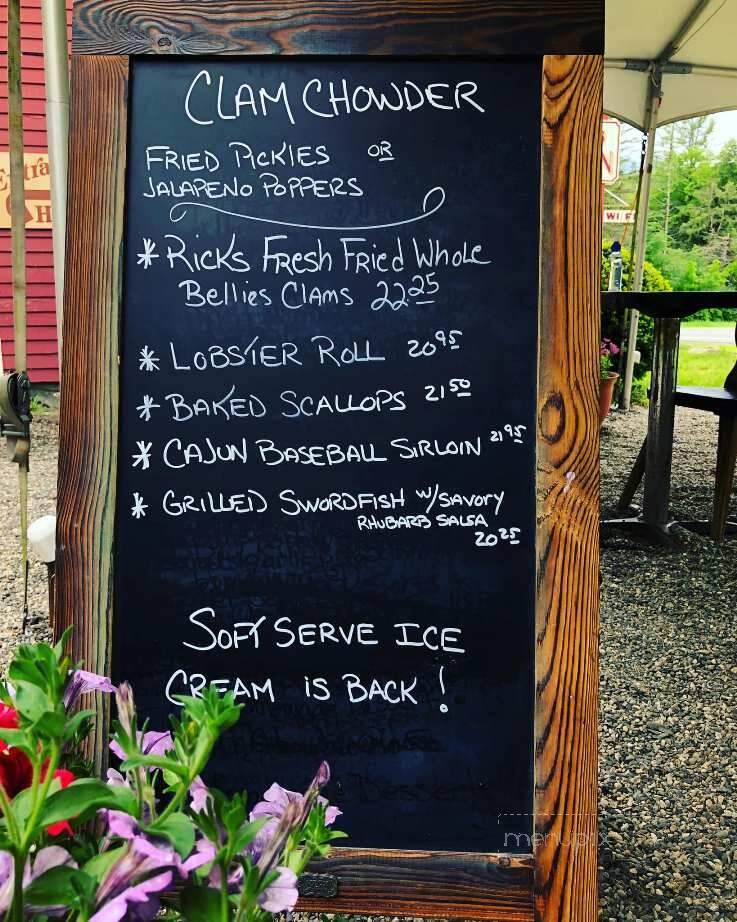 CLAM CHOWDER
FRIED PICKLES OR
JALAPENO POPPERS
* RICKS FRESH FRIED WHOLE
BELLIES CLAMS 22.25
* LOBSTER ROLL 20 95
* BAKED SCALLOPS 21 50
* CAJUN BASEBALL SIRLOIN 21 95
* GRILLED SWORDFISH W/SAVORY
RHUBARB SALSA
20 25
SOFT SERVE ICE
CREAM IS BACK!
WI FI
menupix